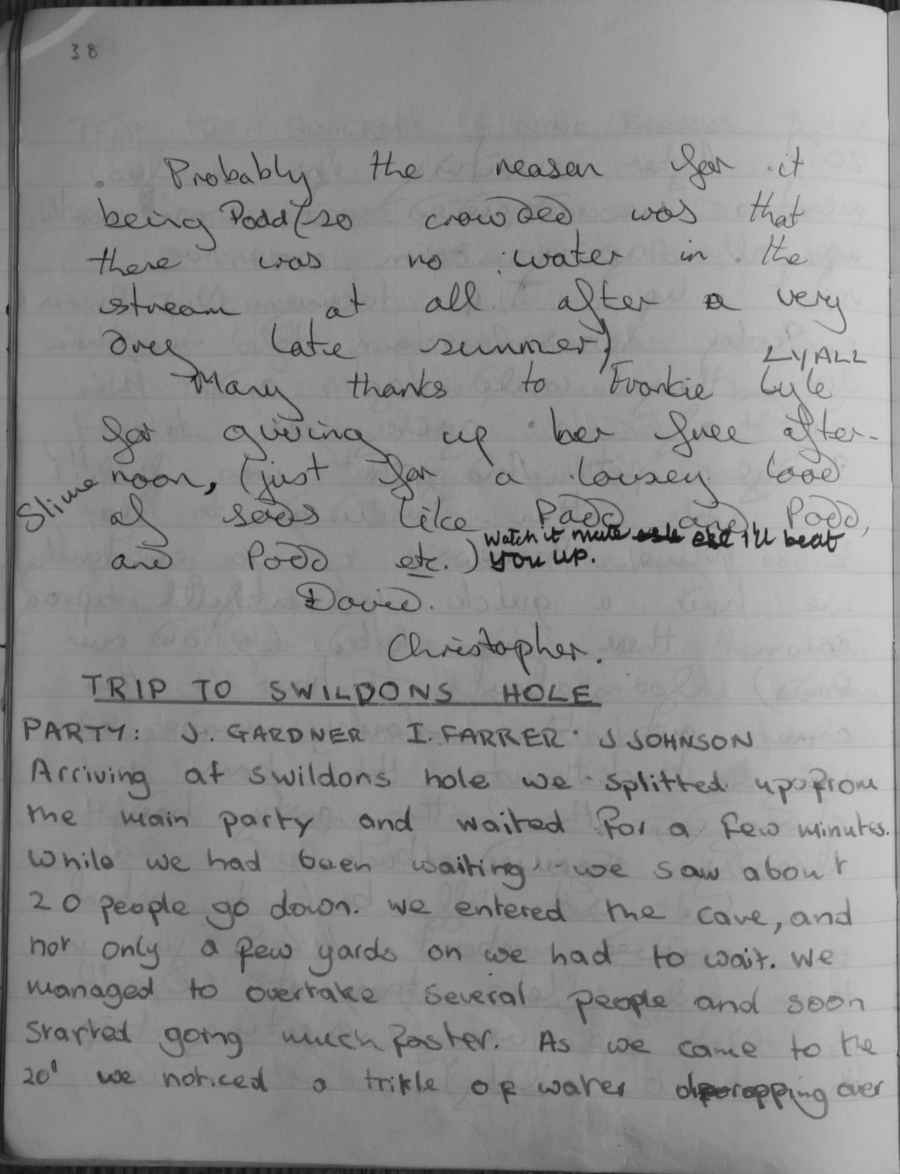 38
Probably the reason for it
being Podd (so crowded was that
there was no water in the
stream at all after a very
Drey late summer)
LYALL
Many thanks to Frankie Lyle
for giving up her free after-
noon, (just for a lousey load
Slime
of sods like Padd and Podd,
and Podd etc.) Watch it mate I'll beat
you up.
David.
Christopher.
TRIP TO SWILDONS HOLE
PARTY: J. GARDNER I. FARRER J JOHNSON
Arriving at swildons hole we splitted up from
the main party and waited for a few minutes.
While we had been waiting we saw about
20 people go down. we entered the cave, and
not only a few yards on we had to wait. We
managed to overtake several people and soon
started going much faster. As we came to the
20' we noticed a trikle of water dropping over